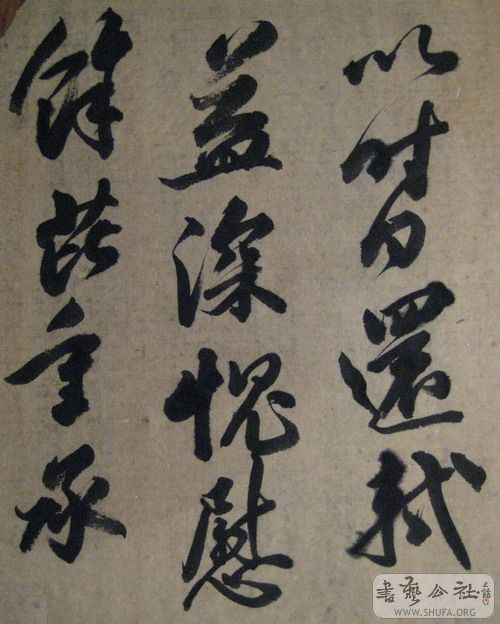 以时日還軾
益深愧慰
餘芘重承
書藝公社
WWW.SHUFA.ORG